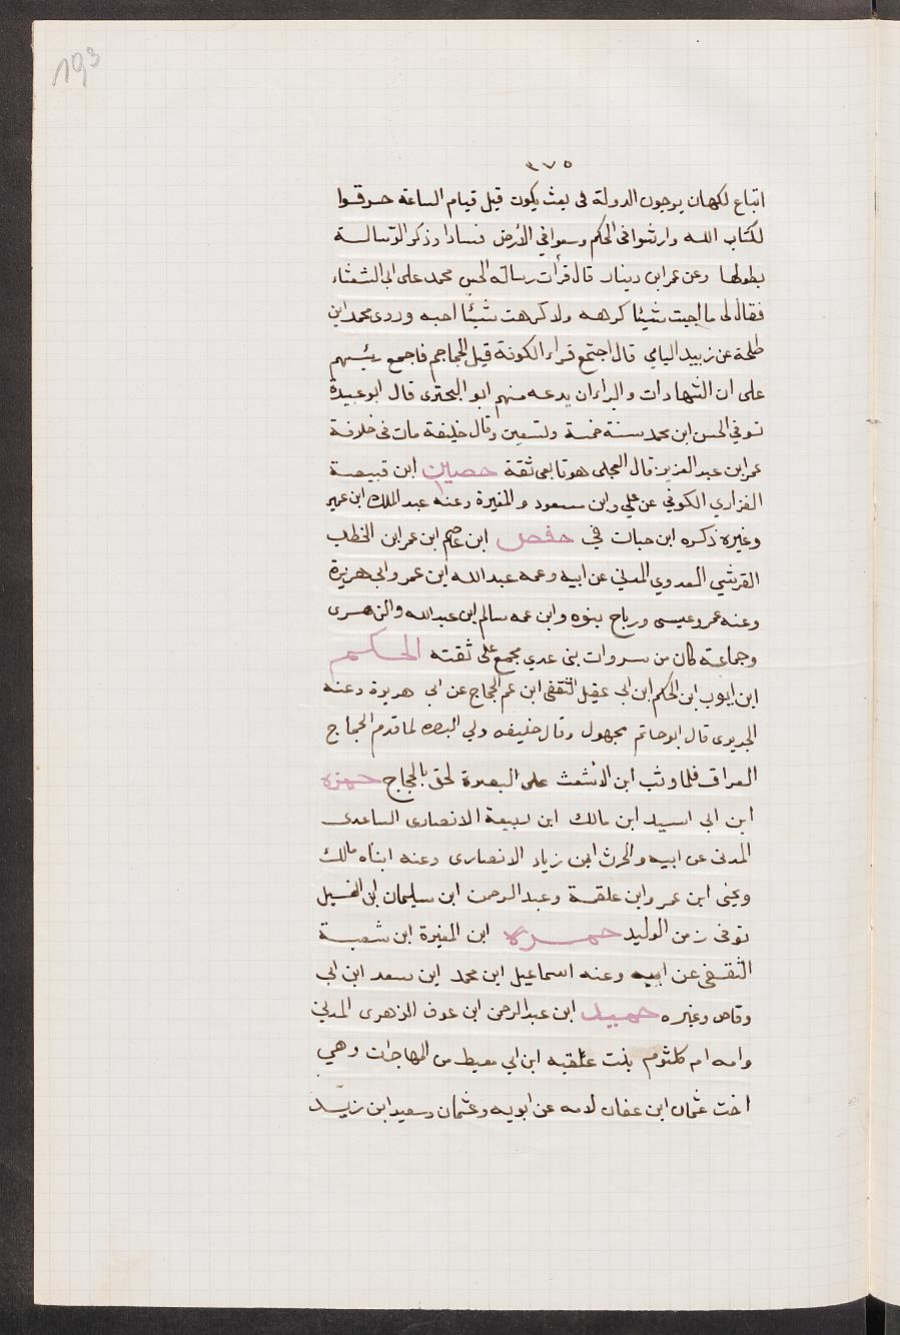 193
٣٧٥
اتباع لكهان يرجون الدولة فى بعث يكون قبل قيام الساعة حرقوا
لكتاب الله وارشوا فى الحكم وسعوا في الأرض فسادا وذكر الرسالة
بطولها وعن عمر ابن دينار قال قرأت رسالة الحسن محمد على ابى الشعثاء
فقال لى ما احببت شيئا كرهه ولا كرهت شيئا احبه وروى محمد ابن
طلحة عن زبيد اليامي قال اجتمع قراء الكوفة قبل الجماجم فاجمع رئيسهم
على ان الشهادات والبراءان بدعه منهم ابو البحترى قال ابو عبيدة
توفي الحسن ابن محمد سنة خمسة وتسعين وقال خليفة مات فى خلافة
عمر ابن عبد العزيز قال العجلى هو تابعى ثقة حصين ابن قبيصة
الفزاري الكوفي عن علي وابن مسعود والمغيرة وعنه عبد الملك ابن عمير
وغيره ذكره ابن حبات في حفص ابن عاصم ابن عمر ابن الخطاب
القرشي العدوي المدني عن ابيه وعمه عبد الله ابن عمر وابى هريرة
وعنه عمر وعيسى ورباح بنوه وابن عمه سالم ابن عبد الله والزهرى
وجماعة كان من سروات بنى عدي مجمع على ثقته الحكم
ابن ايوب ابن الحكم ابن ابى عقيل الثقفى ابن عم الحجاج عن ابى هريرة وعنه
الجريرى قال ابو حاتم مجهول وقال خليفه ولي البصره لما قدم الحجاج
العراق فلما وثب ابن الاشعث على البصرة لحق بالحجاج حمزه
ابن ابى اسيد ابن مالك ابن ربيعة الانصارى الساعدى
المدنى عن ابيه والحرث ابن زياد الانصارى وعنه ابناه مالك
ويحيى ابن عمر وابن علقمة وعبد الرحمن ابن سليمان ابن الغسيل
توفى زمن الوليد حمزة ابن المغيرة ابن شعبة
الثقفى عن ابيه وعنه اسماعيل ابن محمد ابن سعد ابن ابى
وقاص وغيره حميد ابن عبد الرحمن ابن عوف الزهرى المدني
وامه ام كلثوم بنت عقبه ابن ابي معيط من المهاجرات وهي
اخت عثمان ابن عفان لامه عن ابويه وعثمان وسعيد ابن زيد